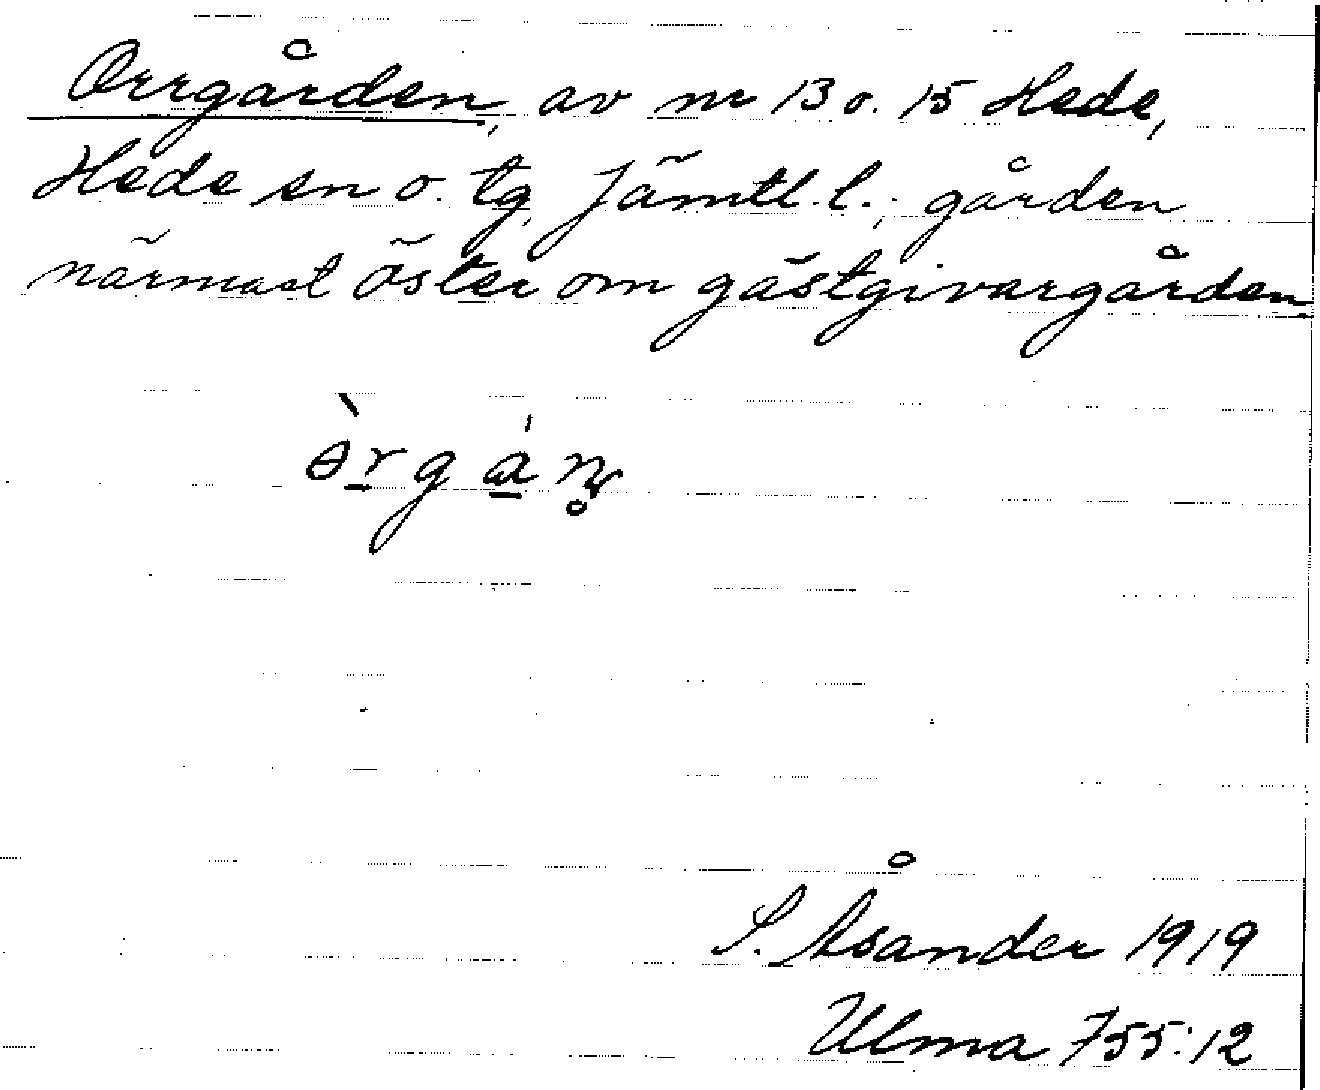 Orrgården, av nr 13 o. 15 Hede,
Hede sn o. tg, Jämtl. l.; gården
närmast öster om gästgivargården
S. Åsander 1919
Ulma 755:12